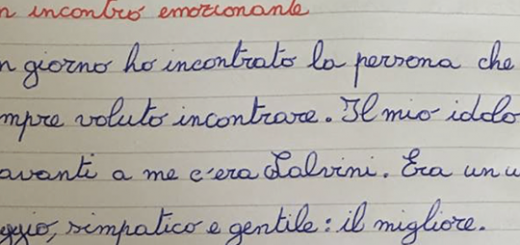 n incontro emozionante
n giorno ho incontrato la persona che
mpre voluto incontrare. Il mio idolo
avanti a me c'era Salvini. Era un u
ggio, simpatico e gentile: il migliore.